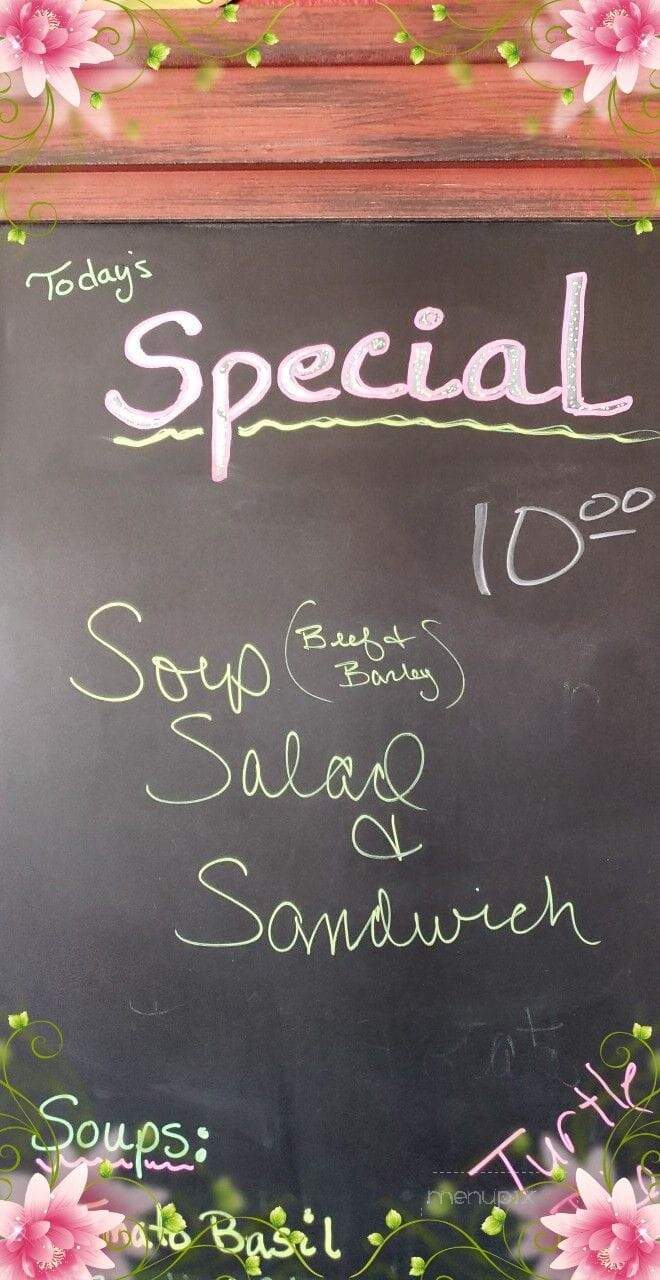 Today's
Special
10.00
Soup (Beef &
Barley)
Salad
&
Sandwich
Soups:
Turtle
menupix
Basil